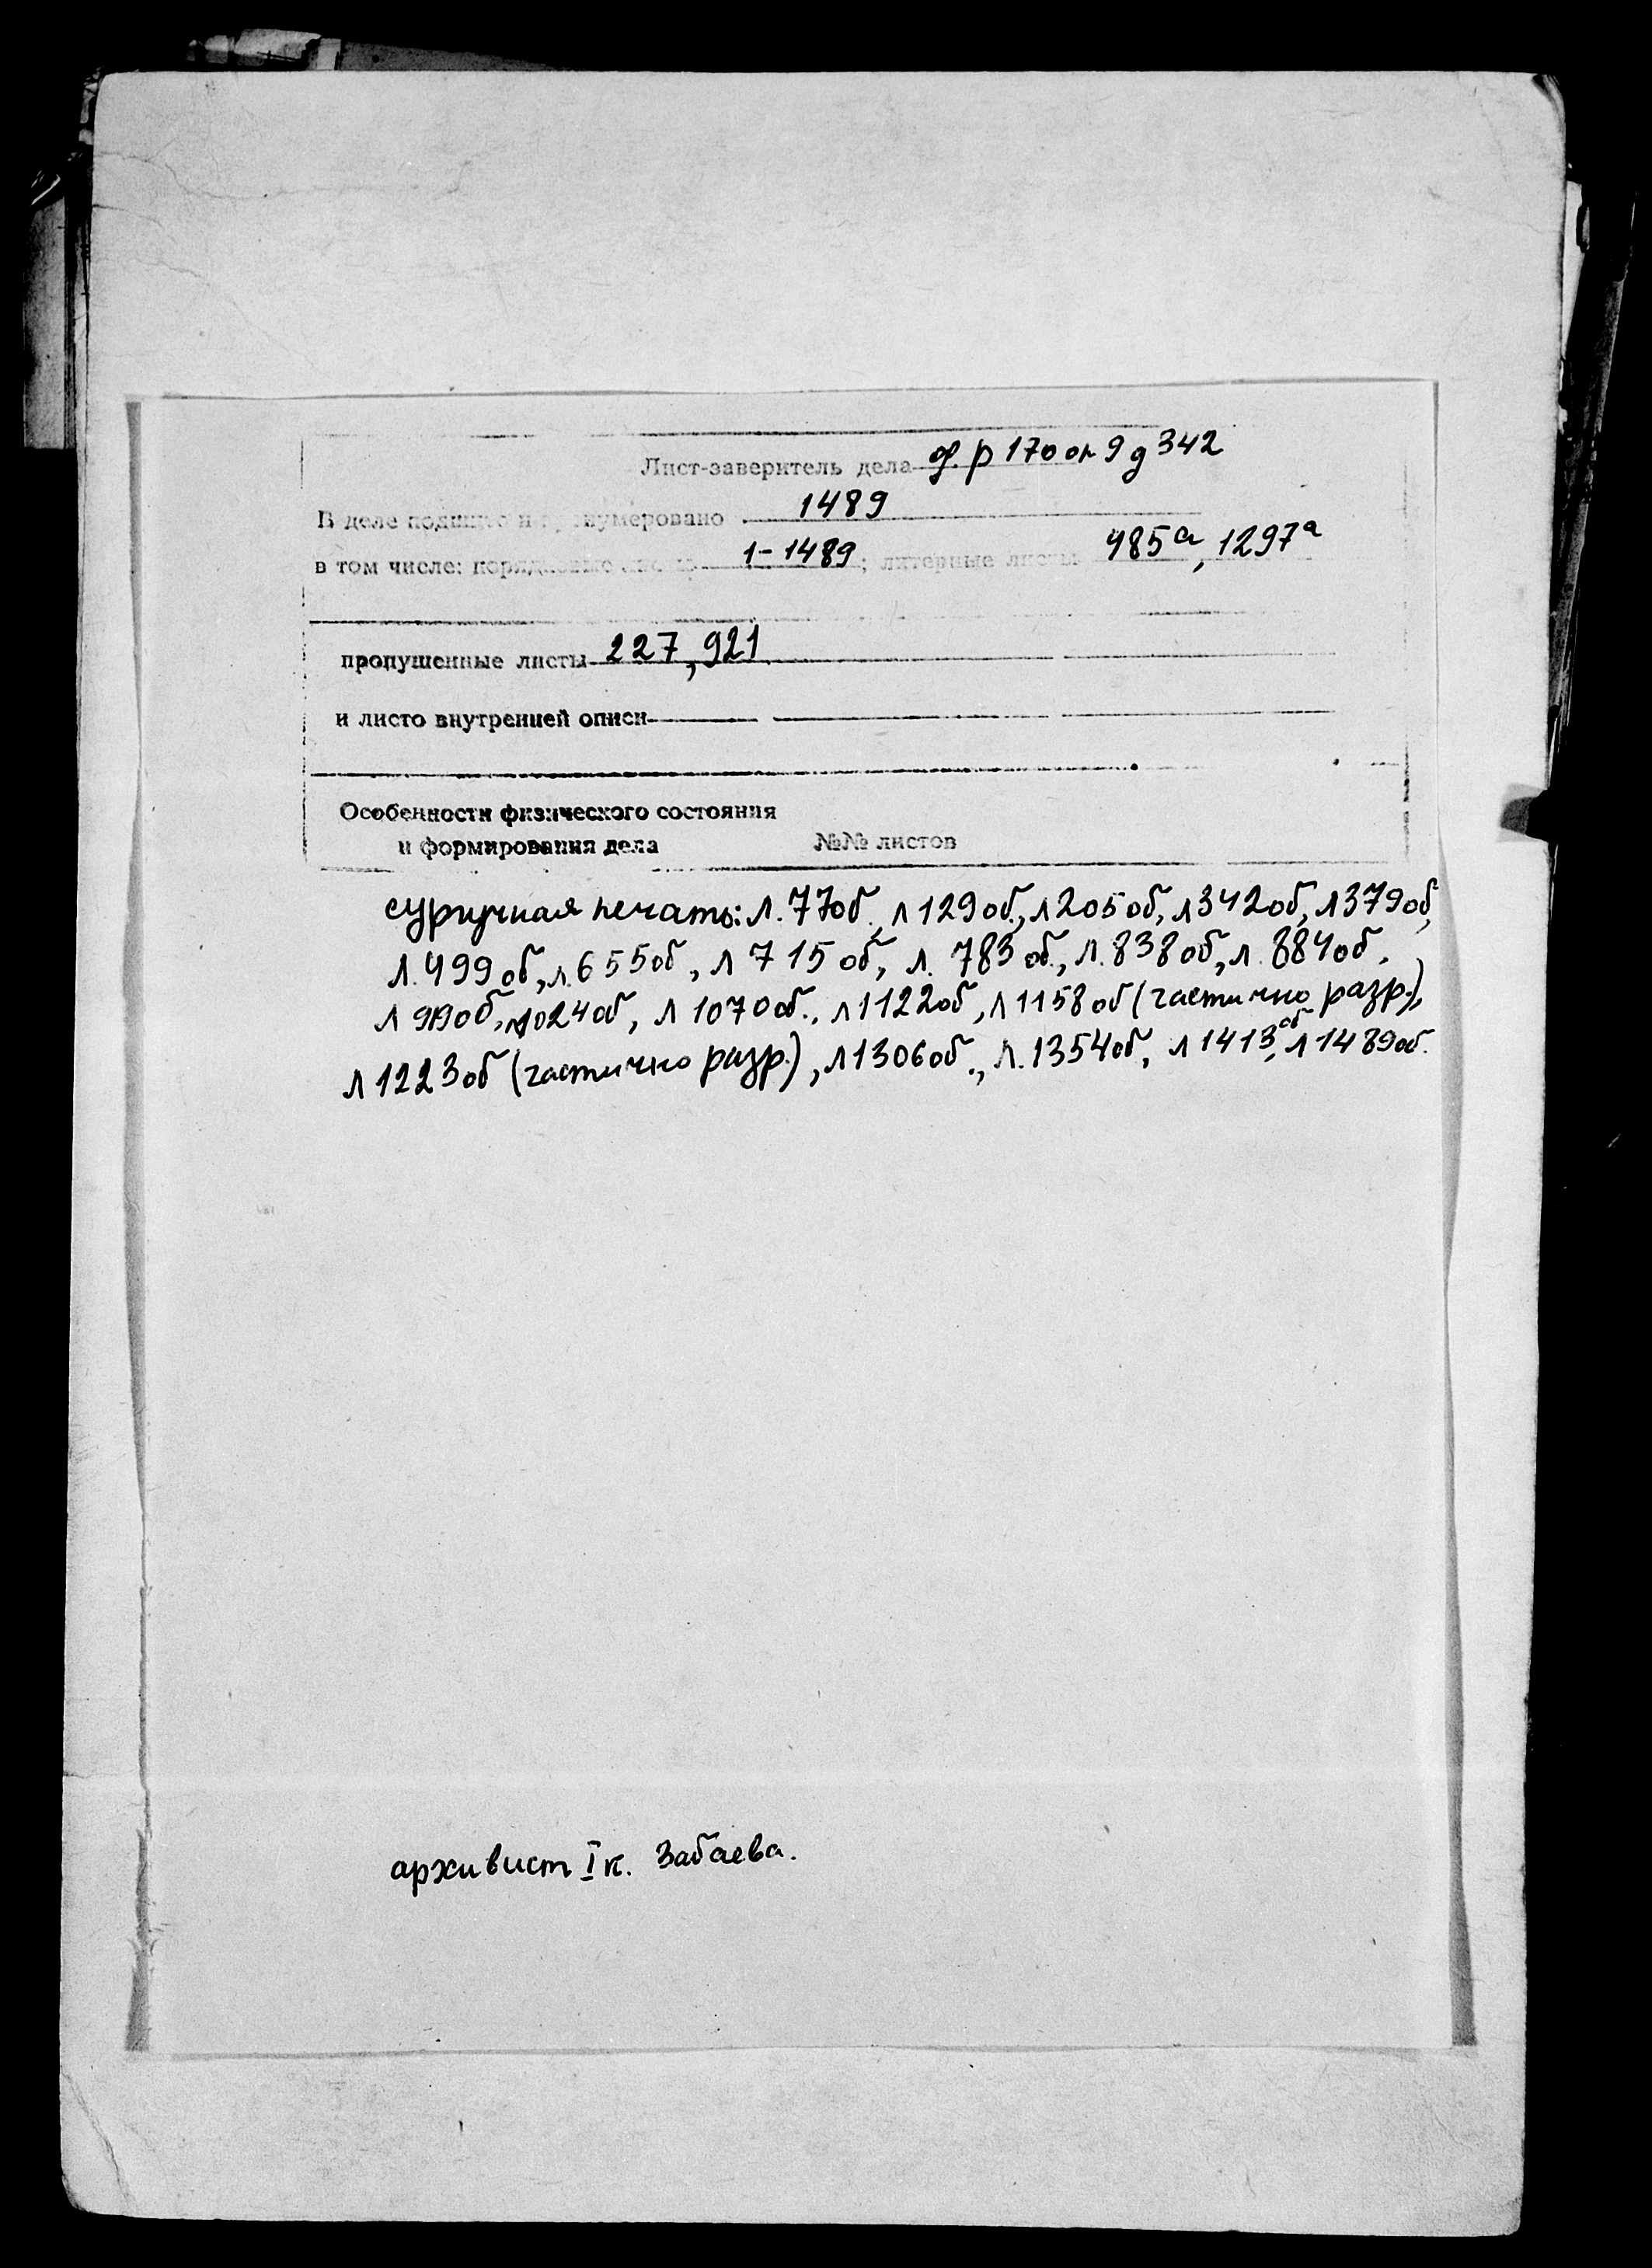 Лист-заверитель дела ф. р 170 оп 9 д 342
В деле подшито и пронумеровано 1489
в том числе: порядковые номера 1-1489; литерные листы 485а, 1297а
пропушенные листы 227, 921
и листо внутренней описи
Особенности физического состояния
и формирования дела №№ листов
сургучная печать: л. 77об., л 129об., л 205об, л 342об, л 379об,
л. 499об, л. 655об, л 715об, л. 783об., л. 838об, л. 884об,
л 990об, л1024об, л 1070об., л 1122об, л 1158об (частично разр.),
л 1223об (частично разр.), л 1306об., л. 1354об, л 1413об, л 1489об.
архивист I к. Забаева.